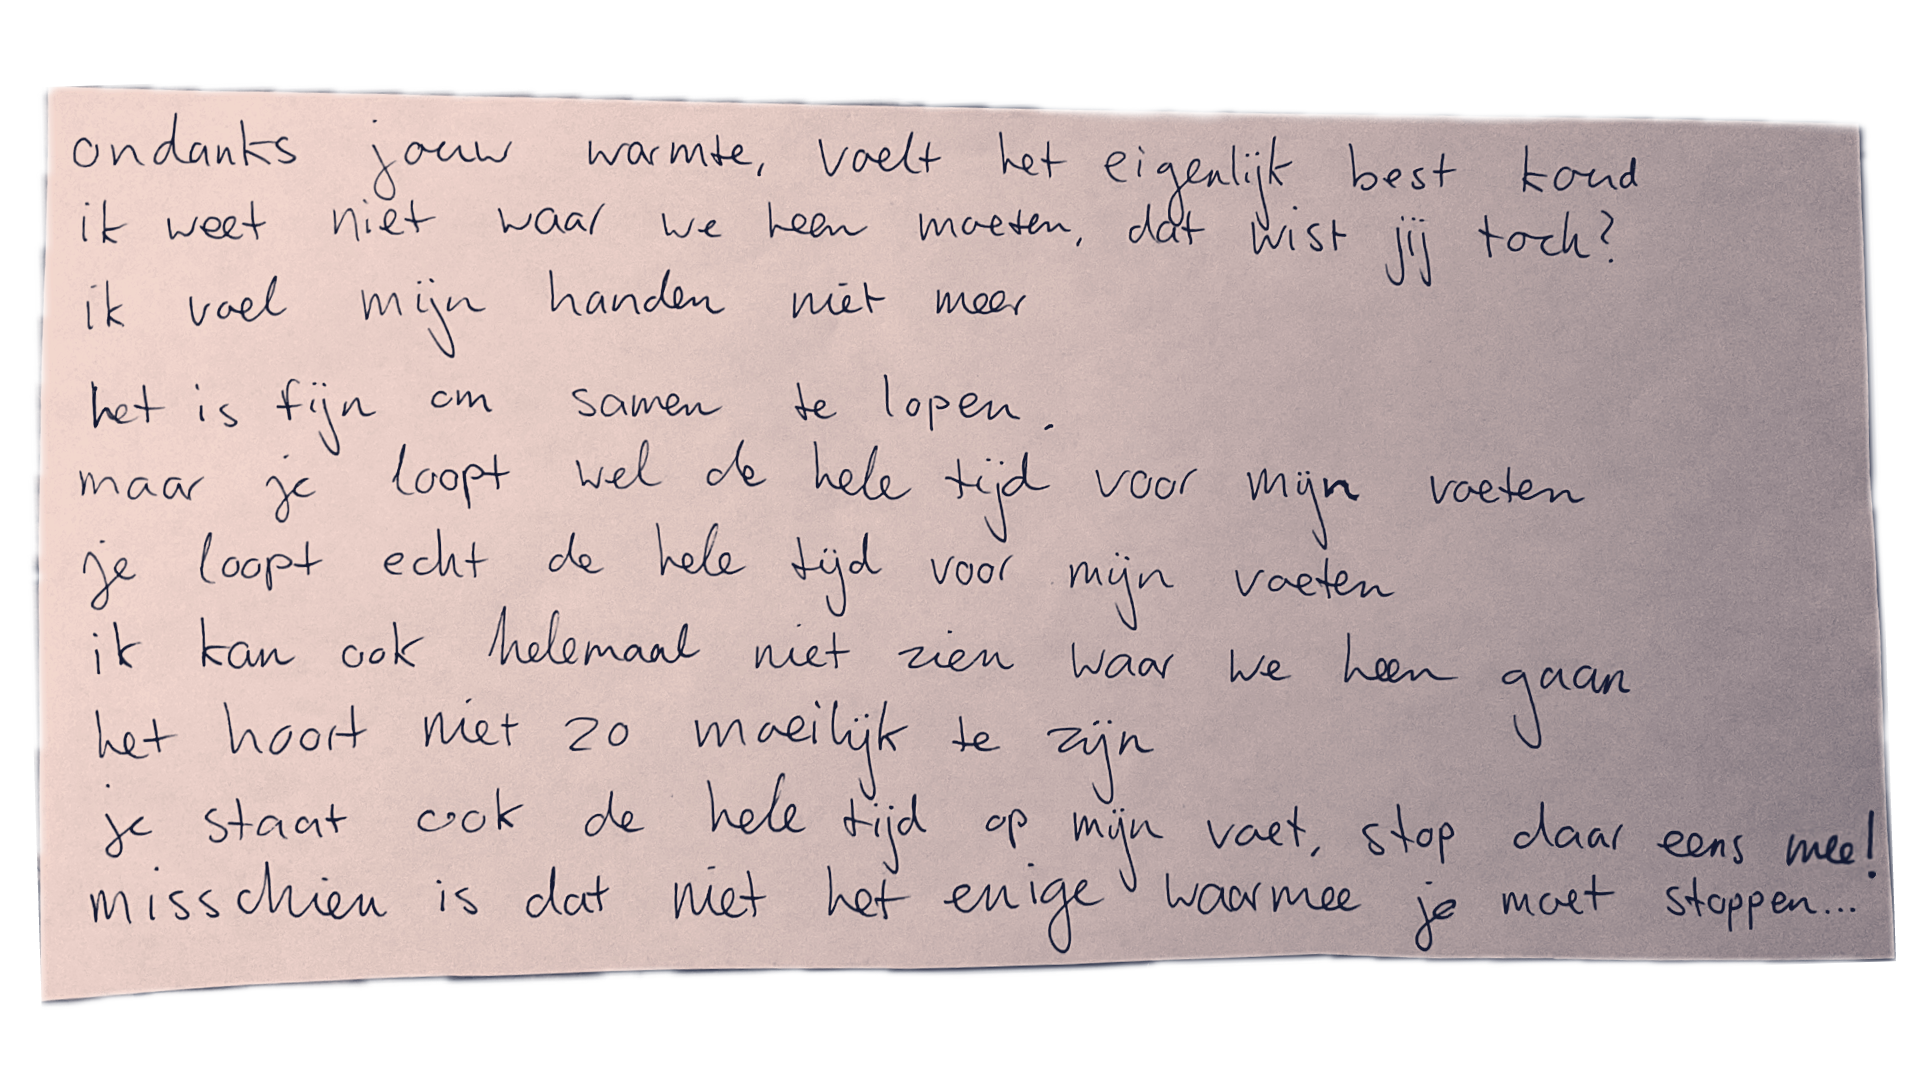 ondanks jouw warmte, voelt het eigenlijk best koud
ik weet niet waar we heen moeten, dat wist jij toch?
ik voel mijn handen niet meer
het is fijn om samen te lopen.
maar je loopt wel de hele tijd voor mijn voeten
je loopt echt de hele tijd voor mijn voeten
ik kan ook helemaal niet zien waar we heen gaan
het hoort niet zo moeilijk te zijn
je staat ook de hele tijd op mijn voet, stop daar eens mee!
misschien is dat niet het enige waarmee je moet stoppen...